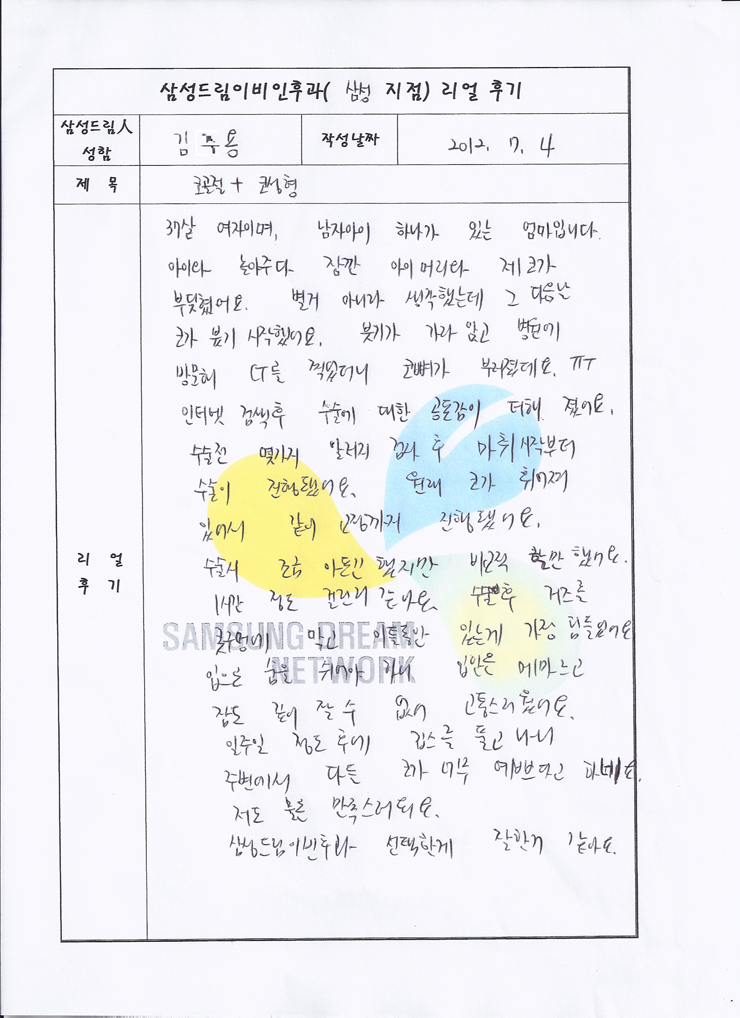 삼성드림이비인후과( 삼성 지점) 리얼 후기
삼성드림人 성함
김주용
작성날짜
2012. 7. 4
제 목
코골절 + 코성형
리 얼 후 기
37살 여자이며, 남자아이 하나가 있는 엄마입니다.
아이와 놀아주다 잠깐 아이 머리와 제 코가
부딪혔어요. 별거 아니라 생각했는데 그 다음날
코가 붓기 시작했어요. 붓기가 가라 앉고 병원에
방문해 CT를 찍었더니 코뼈가 부러졌데요. ㅠㅠ
인터넷 검색후 수술에 대한 공포감이 더해 졌어요.
수술전 몇가지 알러지 검사 후 마취시작부터
수술이 진행됐어요. 원래 코가 휘어져
있어서 같이 교정까지 진행됐어요.
수술시 조금 아픈긴 했지만 비교적 할만 했어요.
1시간 정도 걸린거 같아요. 수술후 거즈를
콧구멍에 막고 이틀동안 있는게 가장 힘들었어요
입으로 숨을 쉬어야 하니 입안은 메마르고
잠도 깊이 잘 수 없어 고통스러웠어요.
일주일 정도 후에 깁스를 풀고 나니
주변에서 다들 코가 너무 예쁘다고 하네요.
저도 물론 만족스러워요.
삼성드림이비인후과 선택한게 잘한거 같아요.
SAMSUNG DREAM
NETWORK